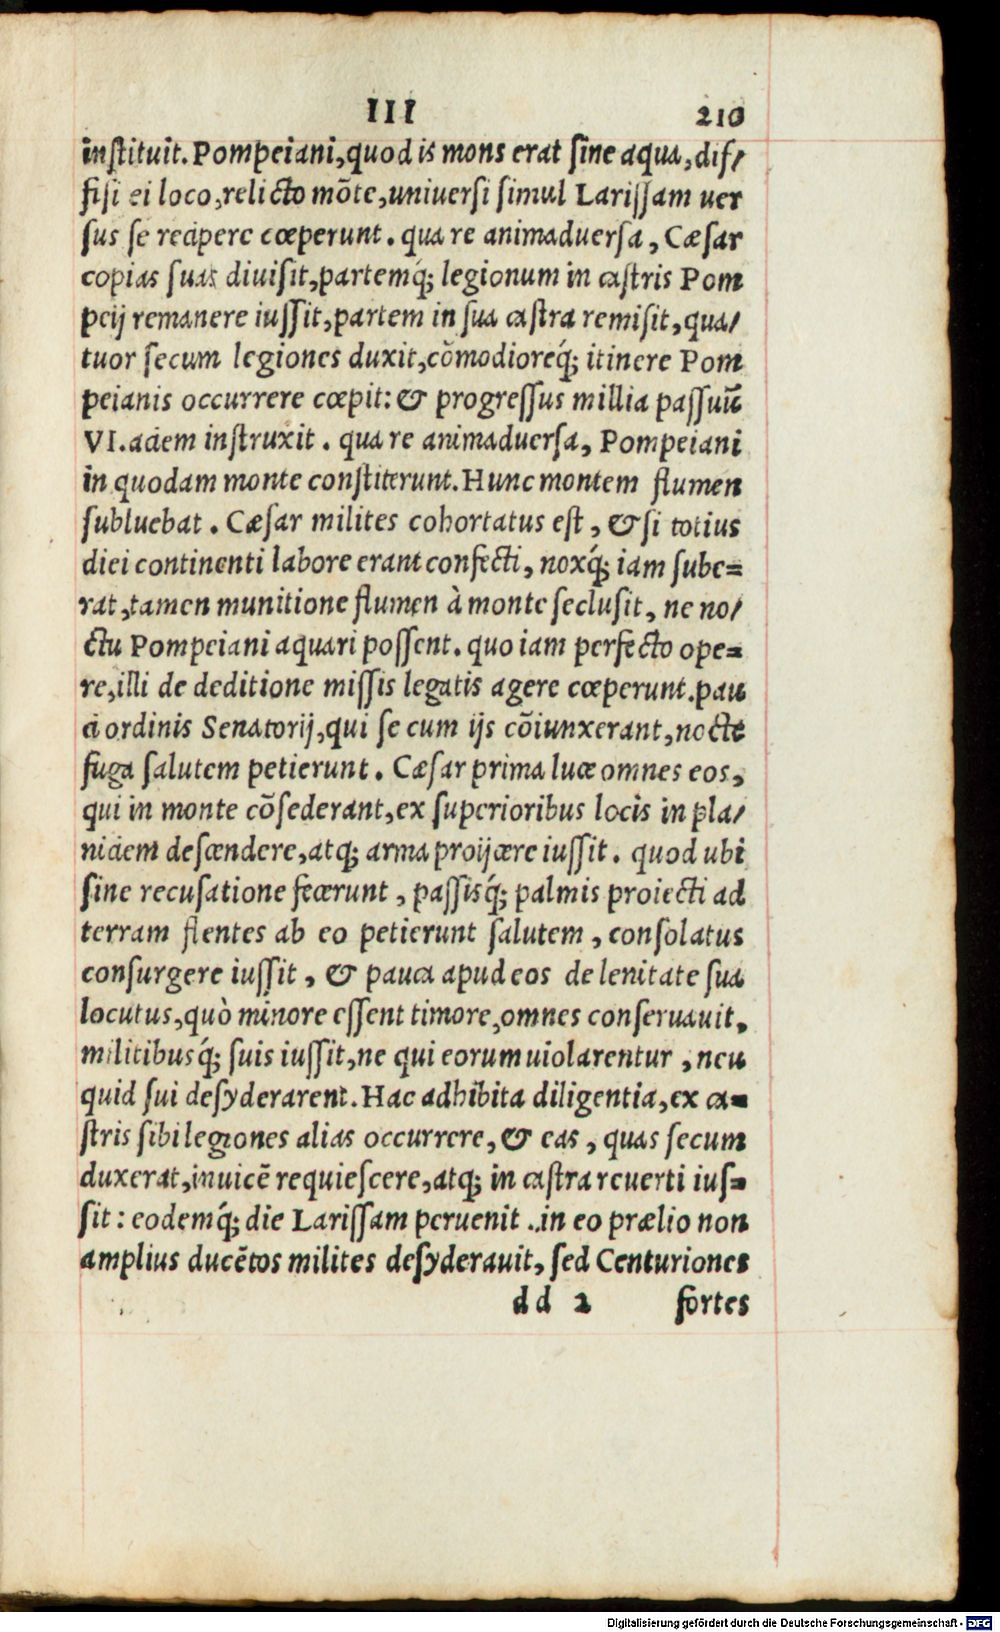 III 210
instituit. Pompeiani, quod is mons erat sine aqua, dif/
fisi ei loco, relicto mōte, universi simul Larissam uer
sus se recipere cœperunt. qua re animaduersa, Cæsar
copias suas divisit, partemq́; legionum in castris Pom
peij remanere iussit, partem in sua castra remisit, qua/
tuor secum legiones duxit, cōmodioreq́; itinere Pom
peianis occurrere cœpit: & progressus millia passuū
VI. aciem instruxit. qua re animaduersa, Pompeiani
in quodam monte constiterunt. Hunc montem flumen
subluebat. Cæsar milites cohortatus est, & si totius
diei continenti labore erant confecti, noxq́; iam sube=
rat, tamen munitione flumen à monte seclusit, ne no/
ctu Pompeiani aquari possent. quo iam perfecto ope=
re, illi de deditione missis legatis agere cœperunt. pau
ci ordinis Senatorij, qui se cum ijs cōiunxerant, nocte
fuga salutem petierunt. Cæsar prima luce omnes eos,
qui in monte cōsederant, ex superioribus locis in pla/
niciem descendere, atq; arma proijcere iussit. quod ubi
sine recusatione fecerunt, passisq́; palmis proiecti ad
terram flentes ab eo petierunt salutem, consolatus
consurgere iussit, & pauca apud eos de lenitate sua
locutus, quò minore essent timore, omnes conseruauit,
militibusq́; suis iussit, ne qui eorum uiolarentur, neu
quid sui desyderarent. Hac adhibita diligentia, ex ca=
stris sibi legiones alias occurrere, & eas, quas secum
duxerat, inuicē requiescere, atq; in castra reuerti ius=
sit: eodemq́; die Larissam peruenit. in eo prælio non
amplius ducētos milites desyderauit, sed Centuriones
dd 2 fortes
Digitalisierung gefördert durch die Deutsche Forschungsgemeinschaft - DFG